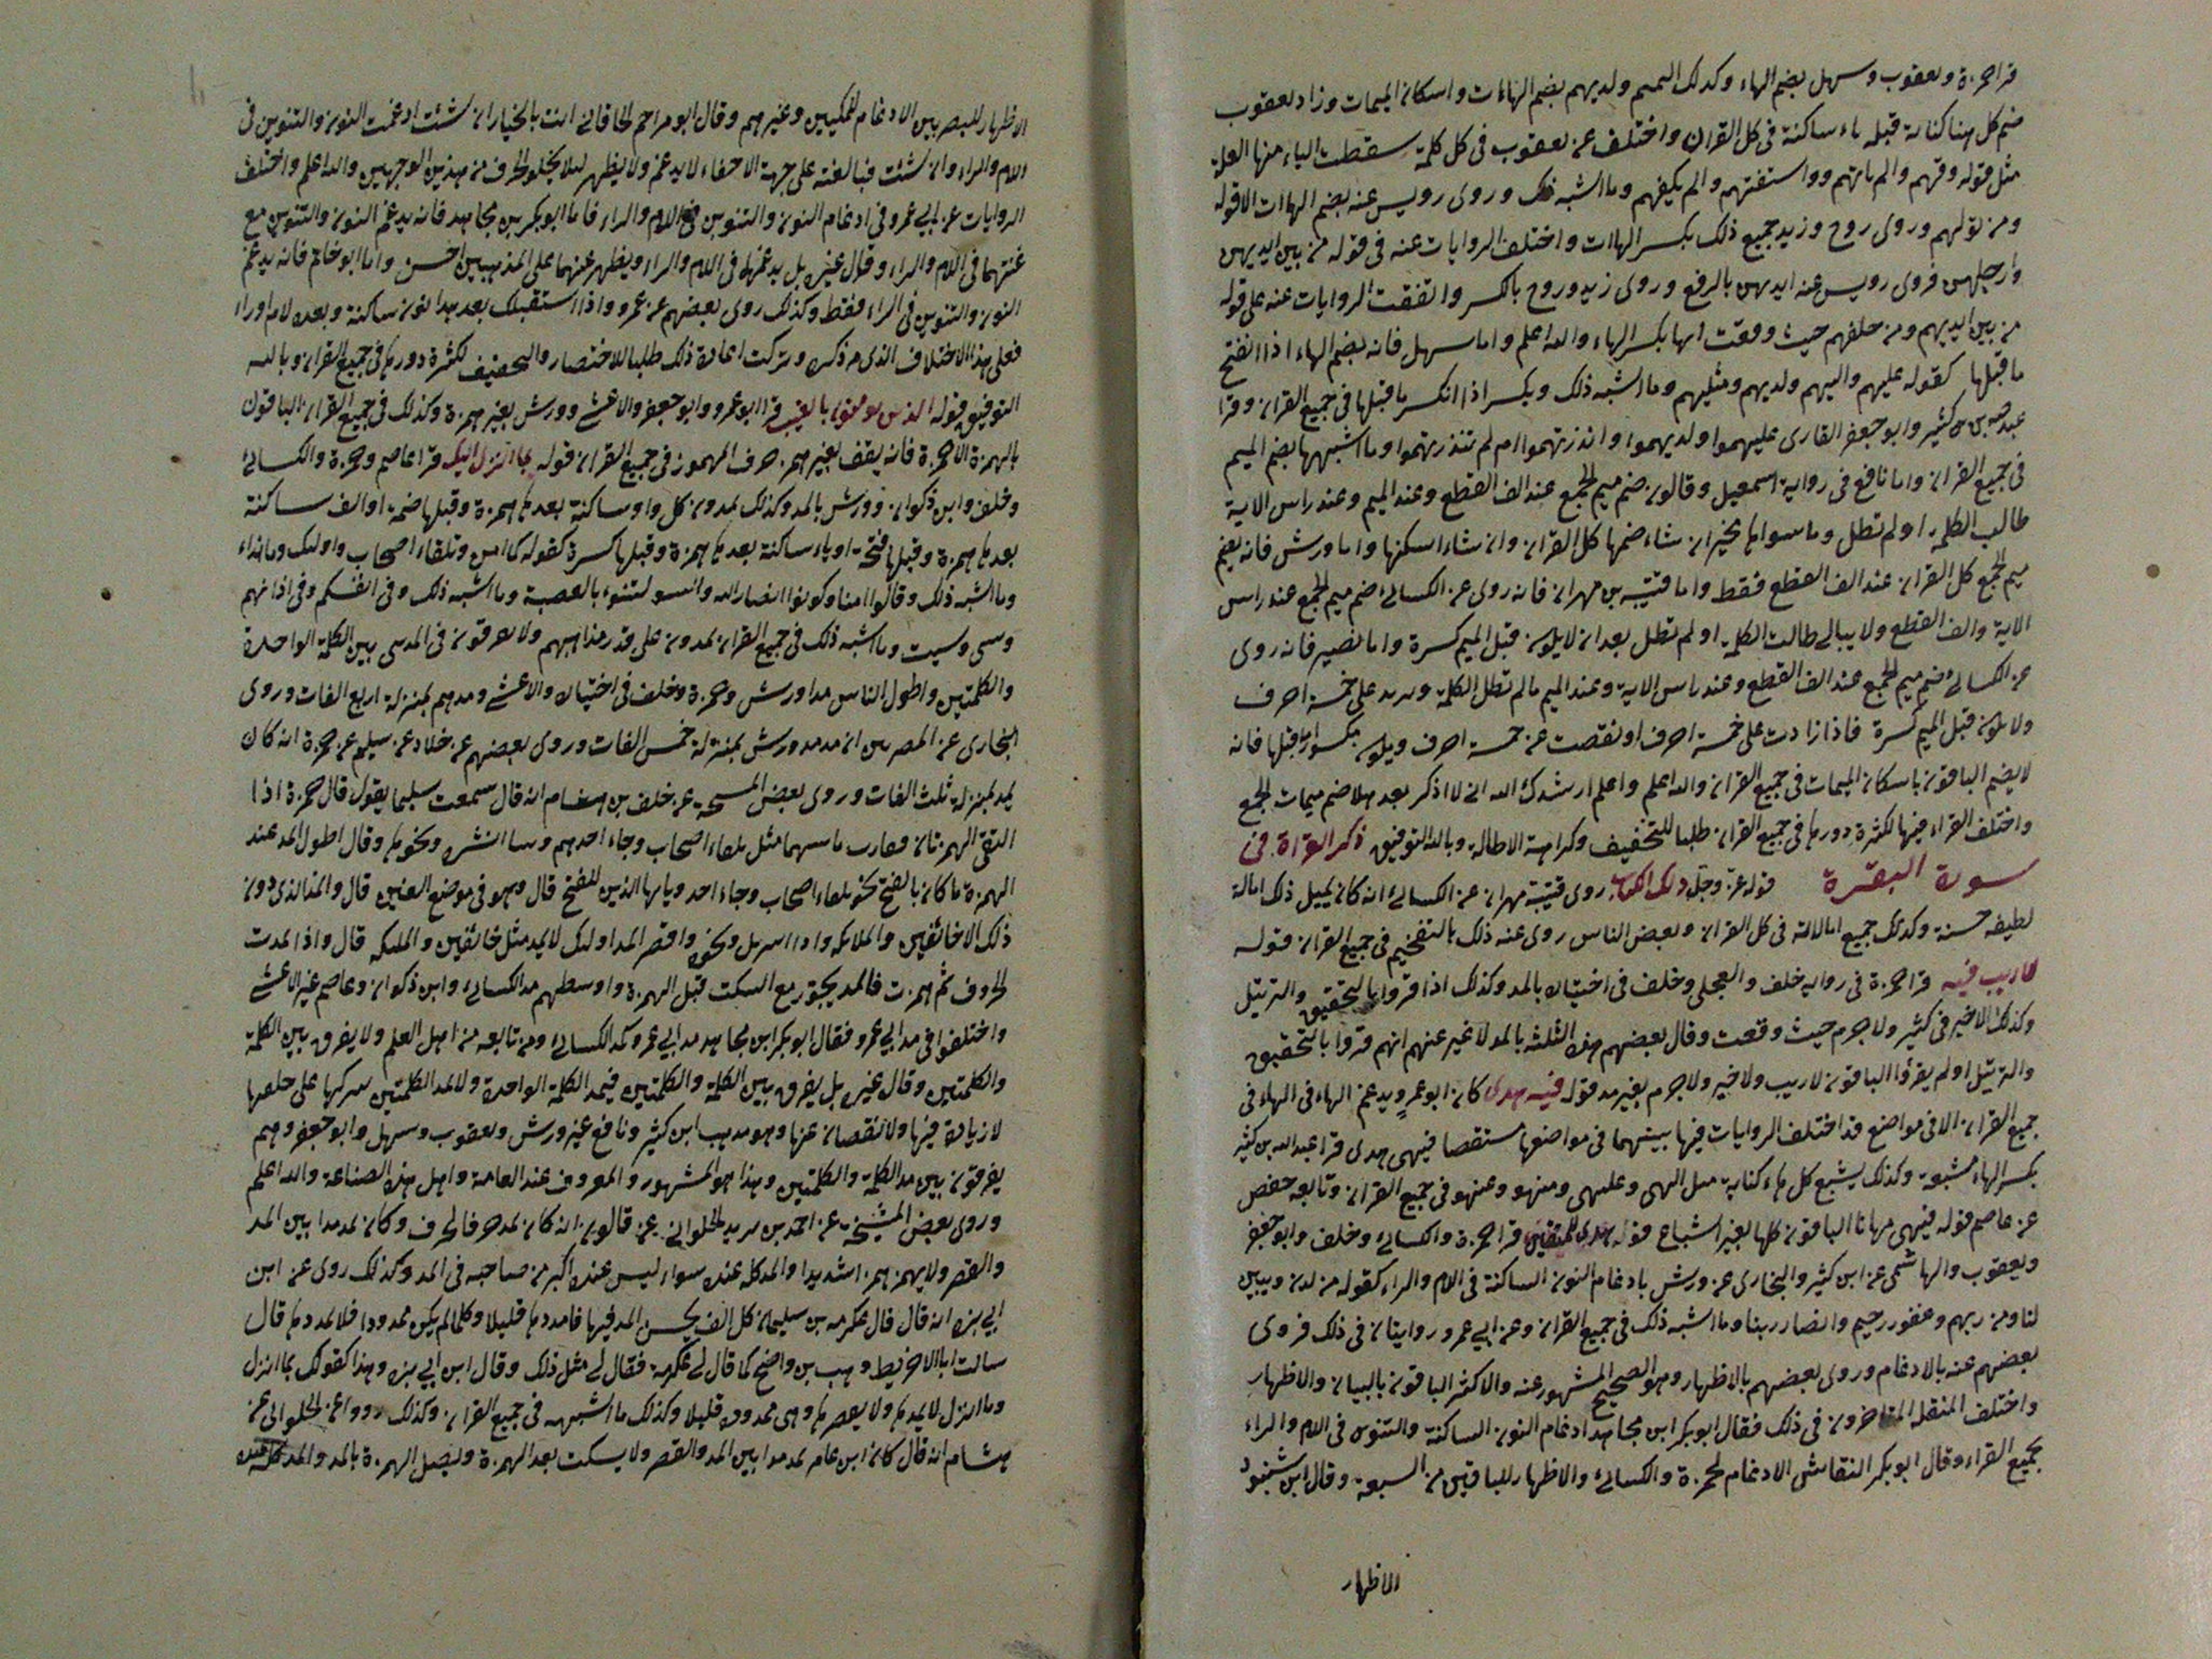 قرا حمزة ويعقوب وسهل بضم الهاء وكذلك اليهم ولديهم بضم الهاءات واسكان الميمات وزاد يعقوب
ضم كل هنا كناية قبله ياء ساكنة في كل القران واختلف عن يعقوب في كل كلمة سقطت الياء منها لعلة
مثل قوله وقهم والم ياتهم وواستفتهم والم يكفهم وما اشبه ذلك وروى رويس عنه بضم الهاات الا قوله
ومن يولهم وروى روح وزيد جميع ذلك بكسر الهاات واختلف الروايات عنه في قوله من بين ايديهن
وارجلهن فروى رويس عنه ايديهن بالرفع وروى زيد وروح بالكسر واتفقت الروايات عنه على قوله
من بين ايديهم ومن خلفهم حيث وقعت انها بكسر الهاء والله اعلم واما سهل فانه يضم الهاء اذا انفتح
ما قبلها كقوله عليهم واليهم ولديهم ومثليهم وما اشبه ذلك ويكسر اذا انكسر ما قبلها في جميع القران وقرا
عبد الله بن كثير وابو جعفر القارى عليهموا ولديهموا وانذرتهموا ام لم تنذرتهموا وما اشبهها بضم الميم
في جميع القران واما نافع في رواية اسمعيل وقالون ضم ميم الجمع عند الف القطع وعند الميم وعند راس الاية
طالب الكلمة او لم تطل وما سواها يخير ان شاء ضمها كل القران وان شاء اسكنها واما ورش فانه يضم
ميم الجمع كل القران عند الف القطع فقط واما قتيبه بن مهران فانه روى عن الكسائي ضم ميم الجمع عند راس
الاية والف القطع ولا يبالي طالت الكلمة او لم تطل بعد ان لا يكون قبل الميم كسرة واما نصير فانه روى
عن الكسائي ضم ميم الجمع عند الف القطع وعند راس الاية وعند الميم ما لم تطل الكلمة ويزيد على خمسة احرف
ولا يكون قبل الميم كسرة فاذا زادت على خمسة احرف او نقصت عن خمسة احرف ويكون مكسورا ما قبلها فانه
لا يضم الباقون باسكان الميمات في جميع القران والله اعلم واعلم ارشدك الله اني لا اذكر بعد هذا ضم ميمات الجمع
واختلف القراء فيها لكثرة دورها في جميع القران طلبا للتخفيف وكراهة الاطالة وبالله التوفيق ذكر القراة في
سورة البقرة قوله عز وجل ذلك الكتاب روى قتيبة مهران عن الكسائي انه كان يميل ذلك امالة
لطيفه حسنة وكذلك جميع امالاته في كل القران وبعض الناس روى عنه ذلك بالتفخيم في جميع القران قوله
لا ريب فيه قرا حمزة في رواية خلف والعجلي وخلف في اختياره بالمد وكذلك اذا قروا بالتحقيق والترتيل
وكذلك لا خير في كثير ولا جرم حيث وقعت وقال بعضهم هذه الثلثة بالمد لا غير عنهم انهم قروا بالتحقيق
والترتيل او لم يقرؤا الباقون لا ريب ولا خير ولا جرم بغير مد قوله فيه هدى كان ابو عمرو يدغم الهاء في الهاء في
جميع القران الا في مواضع قد اختلف الروايات فيها بينهما في مواضعها مستقصا فيهي هدى قرا عبد الله بن كثير
بكسر الهاء مشبعة وكذلك يشبع كل هاء كناية مثل اليهي وعليهي ومنهو وعنهو في جميع القران وتابعه حفص
عن عاصم قوله فيهي مهانا الباقون كلها بغير اشباع قوله هدى للمتقين قرا حمزة والكسائي وخلف وابو جعفر
ويعقوب والهاشمي عن ابن كثير والبخارى عن ورش بادغام النون الساكنة في اللام والراء كقوله من لدن ويبين
لنا ومن ربهم وغفور رحيم وانصار ربنا وما اشبه ذلك في جميع القران وعن ابي عمرو روايتان في ذلك فروى
بعضهم عنه بالادغام وروى بعضهم بالاظهار وهو الصحيح المشهور عنه والاكثر الباقون بالبيان والاظهار
واختلف المنقله المتاخرون في ذلك فقال ابو بكر ابن مجاهد ادغام النون الساكنة والتنوين في اللام والراء
لجميع القراء وقال ابو بكر النقاش الادغام لحمزة والكسائي والاظهار للباقين من السبعة وقال ابن شنبود
الاظهار
الاظهار للبصريين الادغام للمكيين وغيرهم وقال ابو مزاحم الخاقاني انت بالخيار ان شئت ادغمت النون والتنوين في
اللام والراء وان شئت فبالغنه على جهة الاخفاء لا يدغم ولا يظهر لئلا يخلو الحرف من هذين الوجهين والله اعلم واختلف
الروايات عن ابي عمرو في ادغام النون والتنوين في اللام والراء فاما ابو بكر بن مجاهد فانه يدغم النون والتنوين مع
غنتهما في اللام والراء وقال غيره بل يدغمها في اللام والراء ويظهر غنهما على المذهبين احسن واما ابو حاتم فانه يدغم
النون والتنوين في الراء فقط وكذلك روى بعضهم عن عمرو واذا استقبلك بعد هذا نون ساكنة وبعده لام او را
فعلى هذا الاختلاف الذى مر ذكره وتركت اعادة ذلك طلبا للاختصار والتخفيف لكثرة دورها في جميع القران وبالله
التوفيق قوله الذين يومنون بالغيب قرا ابو عمرو وابو جعفر والاعشى وورش بغير همزة وكذلك في جميع القران الباقون
بالهمزة الا حمزة فانه يقف بغير همز حرف المهموز في جميع القران قوله بما انزل اليك قرا عاصم وحمزة والكسائي
وخلف وابن ذكوان وورش بالمد وكذلك يمدون كل واو ساكنة بعدها همزة وقبلها ضمة او الف ساكنة
بعدها همزة وقبلها فتحة او ياء ساكنة بعدها همزة وقبلها كسرة كقوله كما امن وتلقاء اصحاب واولئك وما انداء
وما اشبه ذلك وقالوا امنا وكونوا انصار الله والسو لتنوء بالعصبة وما اشبه ذلك وفي انفسكم وفي اذانهم
وسي وسيت وما اشبه ذلك في جميع القران يمدون على قدر مذاهبهم ولا يفرقون في المد بين الكلمة الواحدة
والكلمتين واطول الناس مدا ورش وحمزة وخلف في اختياره والاعشى ومدهم بمنزلة اربع الفات وروى
البخارى عن المصريين ان مد ورش بمنزلة خمس الفات وروى بعضهم عن خلاد عن سليم عن حمزة انه كان
يمد بمنزلة ثلث الفات وروى بعض المشيخة عن خلف بن هشام انه قال سمعت سليما يقول قال حمزة اذا
التقى الهمزتان مثل تلقاء اصحاب وجاء احدهم وسا انشره ونحوها وقال اطول المد عند
الهمزة ما كان بالفتح نحو تلقاء اصحاب وجاء احد ويا ايها الذين للفتح قال وهو في موضع العنين قال والمد الذى دون
ذلك الا خائفين والملائكة واذا اسريل ونحوه واقصر المد اولئك لا يمد مثل خائفين والملئكة قال واذا مدت
الحروف ثم همزت فالمد يجترى مع السكت قبل الهمزة واوسطهم مد الكسائي وابن ذكوان وعاصم غير الاعشى
واختلفوا في مد ابي عمرو فقال ابو بكر ابن مجاهد مد ابي عمرو كمد الكسائي ومن تابعه من اهل العلم ولا يفرق بين الكلمة
والكلمتين وقال غيره بل يفرق بين الكلمة والكلمتين فيمد الكلمة الواحدة ولا يمد الكلمتين يتركها على خلقها
لا زيادة فيها ولا نقصان عنها وهو مذهب ابن كثير ونافع غير ورش ويعقوب وسهل وابو جعفر وهم
يفرقون بين مد الكلمة والكلمتين وهذا هو المشهور والمعروف عند العامة واهل هذه الصناعة والله اعلم
وروى بعض المشيخة عن احمد بن يزيد الحلواني عن قالون انه كان يمد حرفا لحرف وكان يمد مدا بين المد
والقصر ولا يهمز همزا شديدا والمد كله عنده سواء ليس عنده اكبر من صاحبه في المد وكذلك روى عن ابن
ابي بزه انه قال قال عكرمه بن سليمان كل الف يحسن المد فيها فامددها قليلا وكلما لم يكن ممدودا فلا يمددها قال
سالت ابا الاخريط وهب بن واضح كما قال لي عكرمة فقال لي مثل ذلك وقال ابن ابي بزه وهذا كقولك بما انزل
وما انزل لا يمدها ولا يقصرها وهي ممدودة قليلا وكذلك ما اشبهه في جميع القران وكذلك رووا عن الحلواني عن
هشام انه قال كان ابن عامر يمد مدا بين المد والقصر ولا يسكت بعد الهمزة ويصل الهمزة بالمد والمد كله عنده